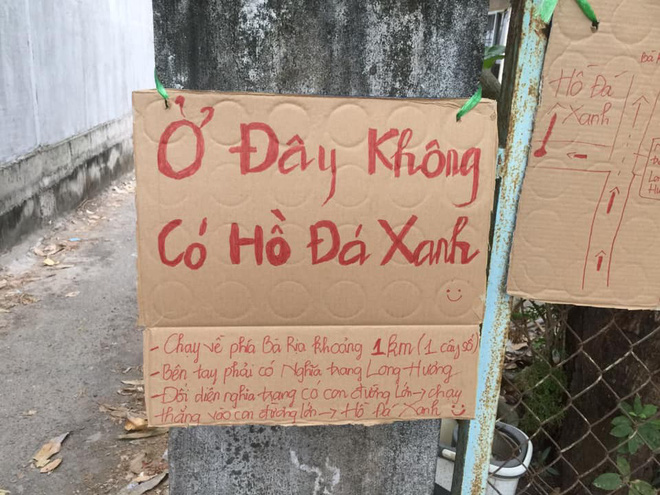 Ở Đây Không
Có Hồ Đá Xanh
- Chạy về phía Bà Rịa khoảng 1km (1 cây số)
- Bên tay phải có Nghĩa trang Long Hương
- Đối diện nghĩa trang có con đường lớn → chạy
thẳng vào con đường lớn → Hồ Đá Xanh
Hồ Đá
Xanh